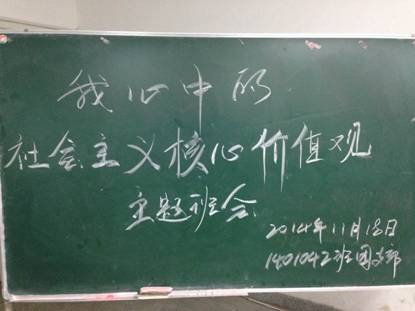 我心中的
社会主义核心价值观
主题班会
2014年11月18日
141042班团支部